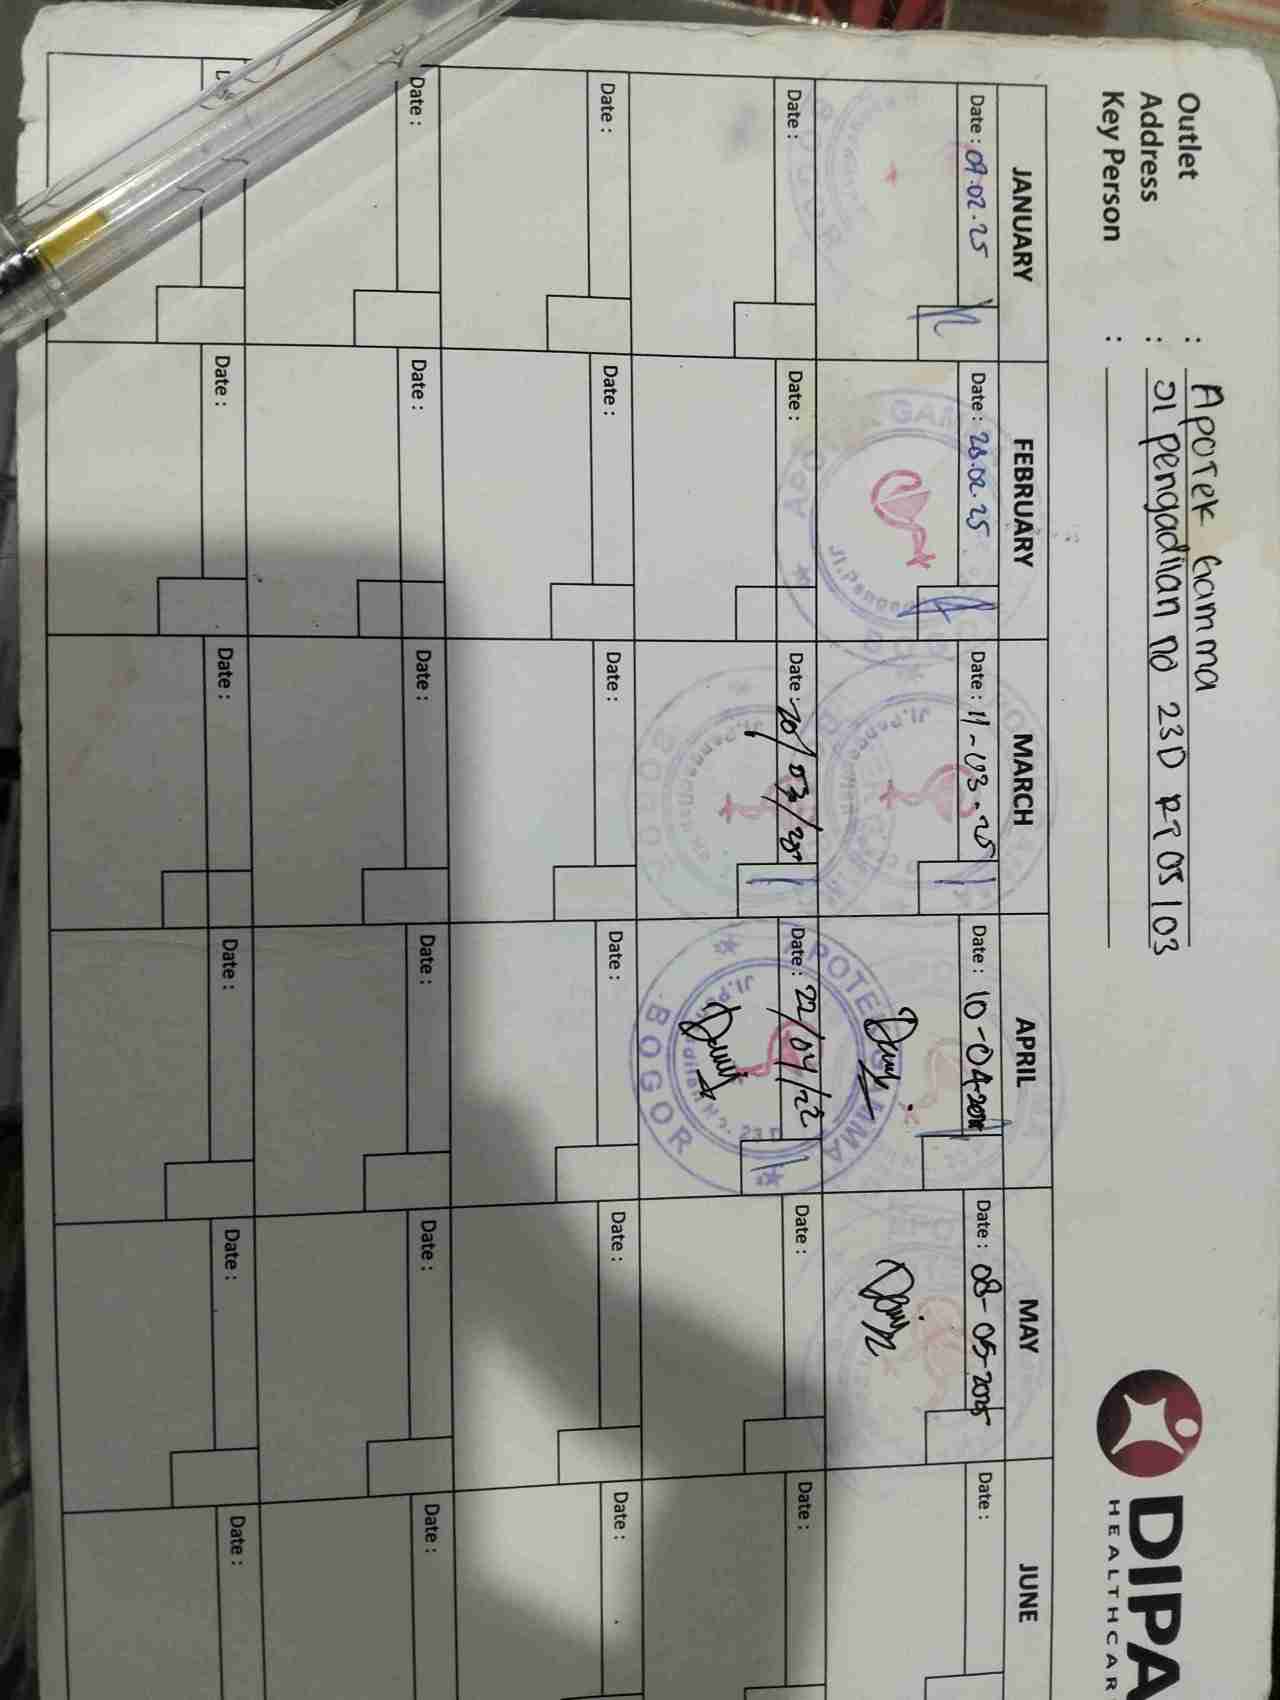 Outlet : Apotek Gamma
Address : Jl pengadilan no 23D RT 05 / 03
Key Person :
DIPA
HEALTHCAR
JANUARY FEBRUARY MARCH APRIL MAY JUNE
Date : 09.02.25 Date : 28.02.25 Date : 11-03-25 Date : 10-04-2025 Date : 08-05-2025 Date :
APOTEK GAMMA
Jl.Pengadilan
BOGOR
Date : Date : Date : 20/03/25 Date : 22/04/22 Date : Date :
APOTEK GAMMA
Jl.Pengadilan No. 23D
BOGOR
Date : Date : Date : Date : Date : Date :
Date : Date : Date : Date : Date : Date :
Date : Date : Date : Date : Date :